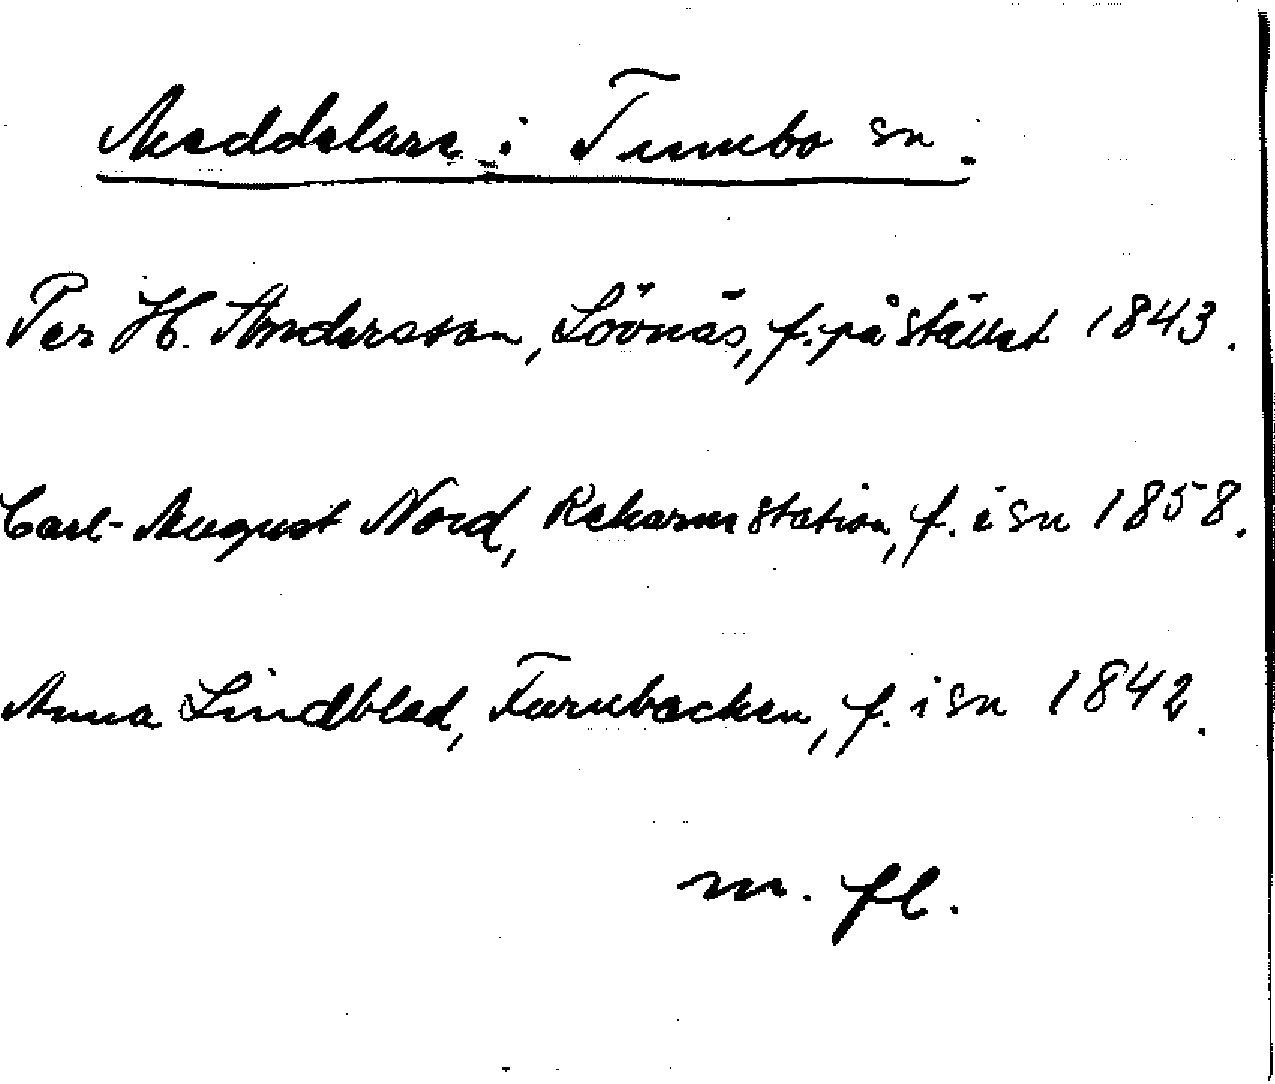 Meddelare i Tumbo sn.
Per H. Andersson, Lövnäs, f. på stället 1843.
Carl-August Nord, Rekarne station, f. i sn 1858.
Anna Lindblad, f. i sn 1842.
m. fl.